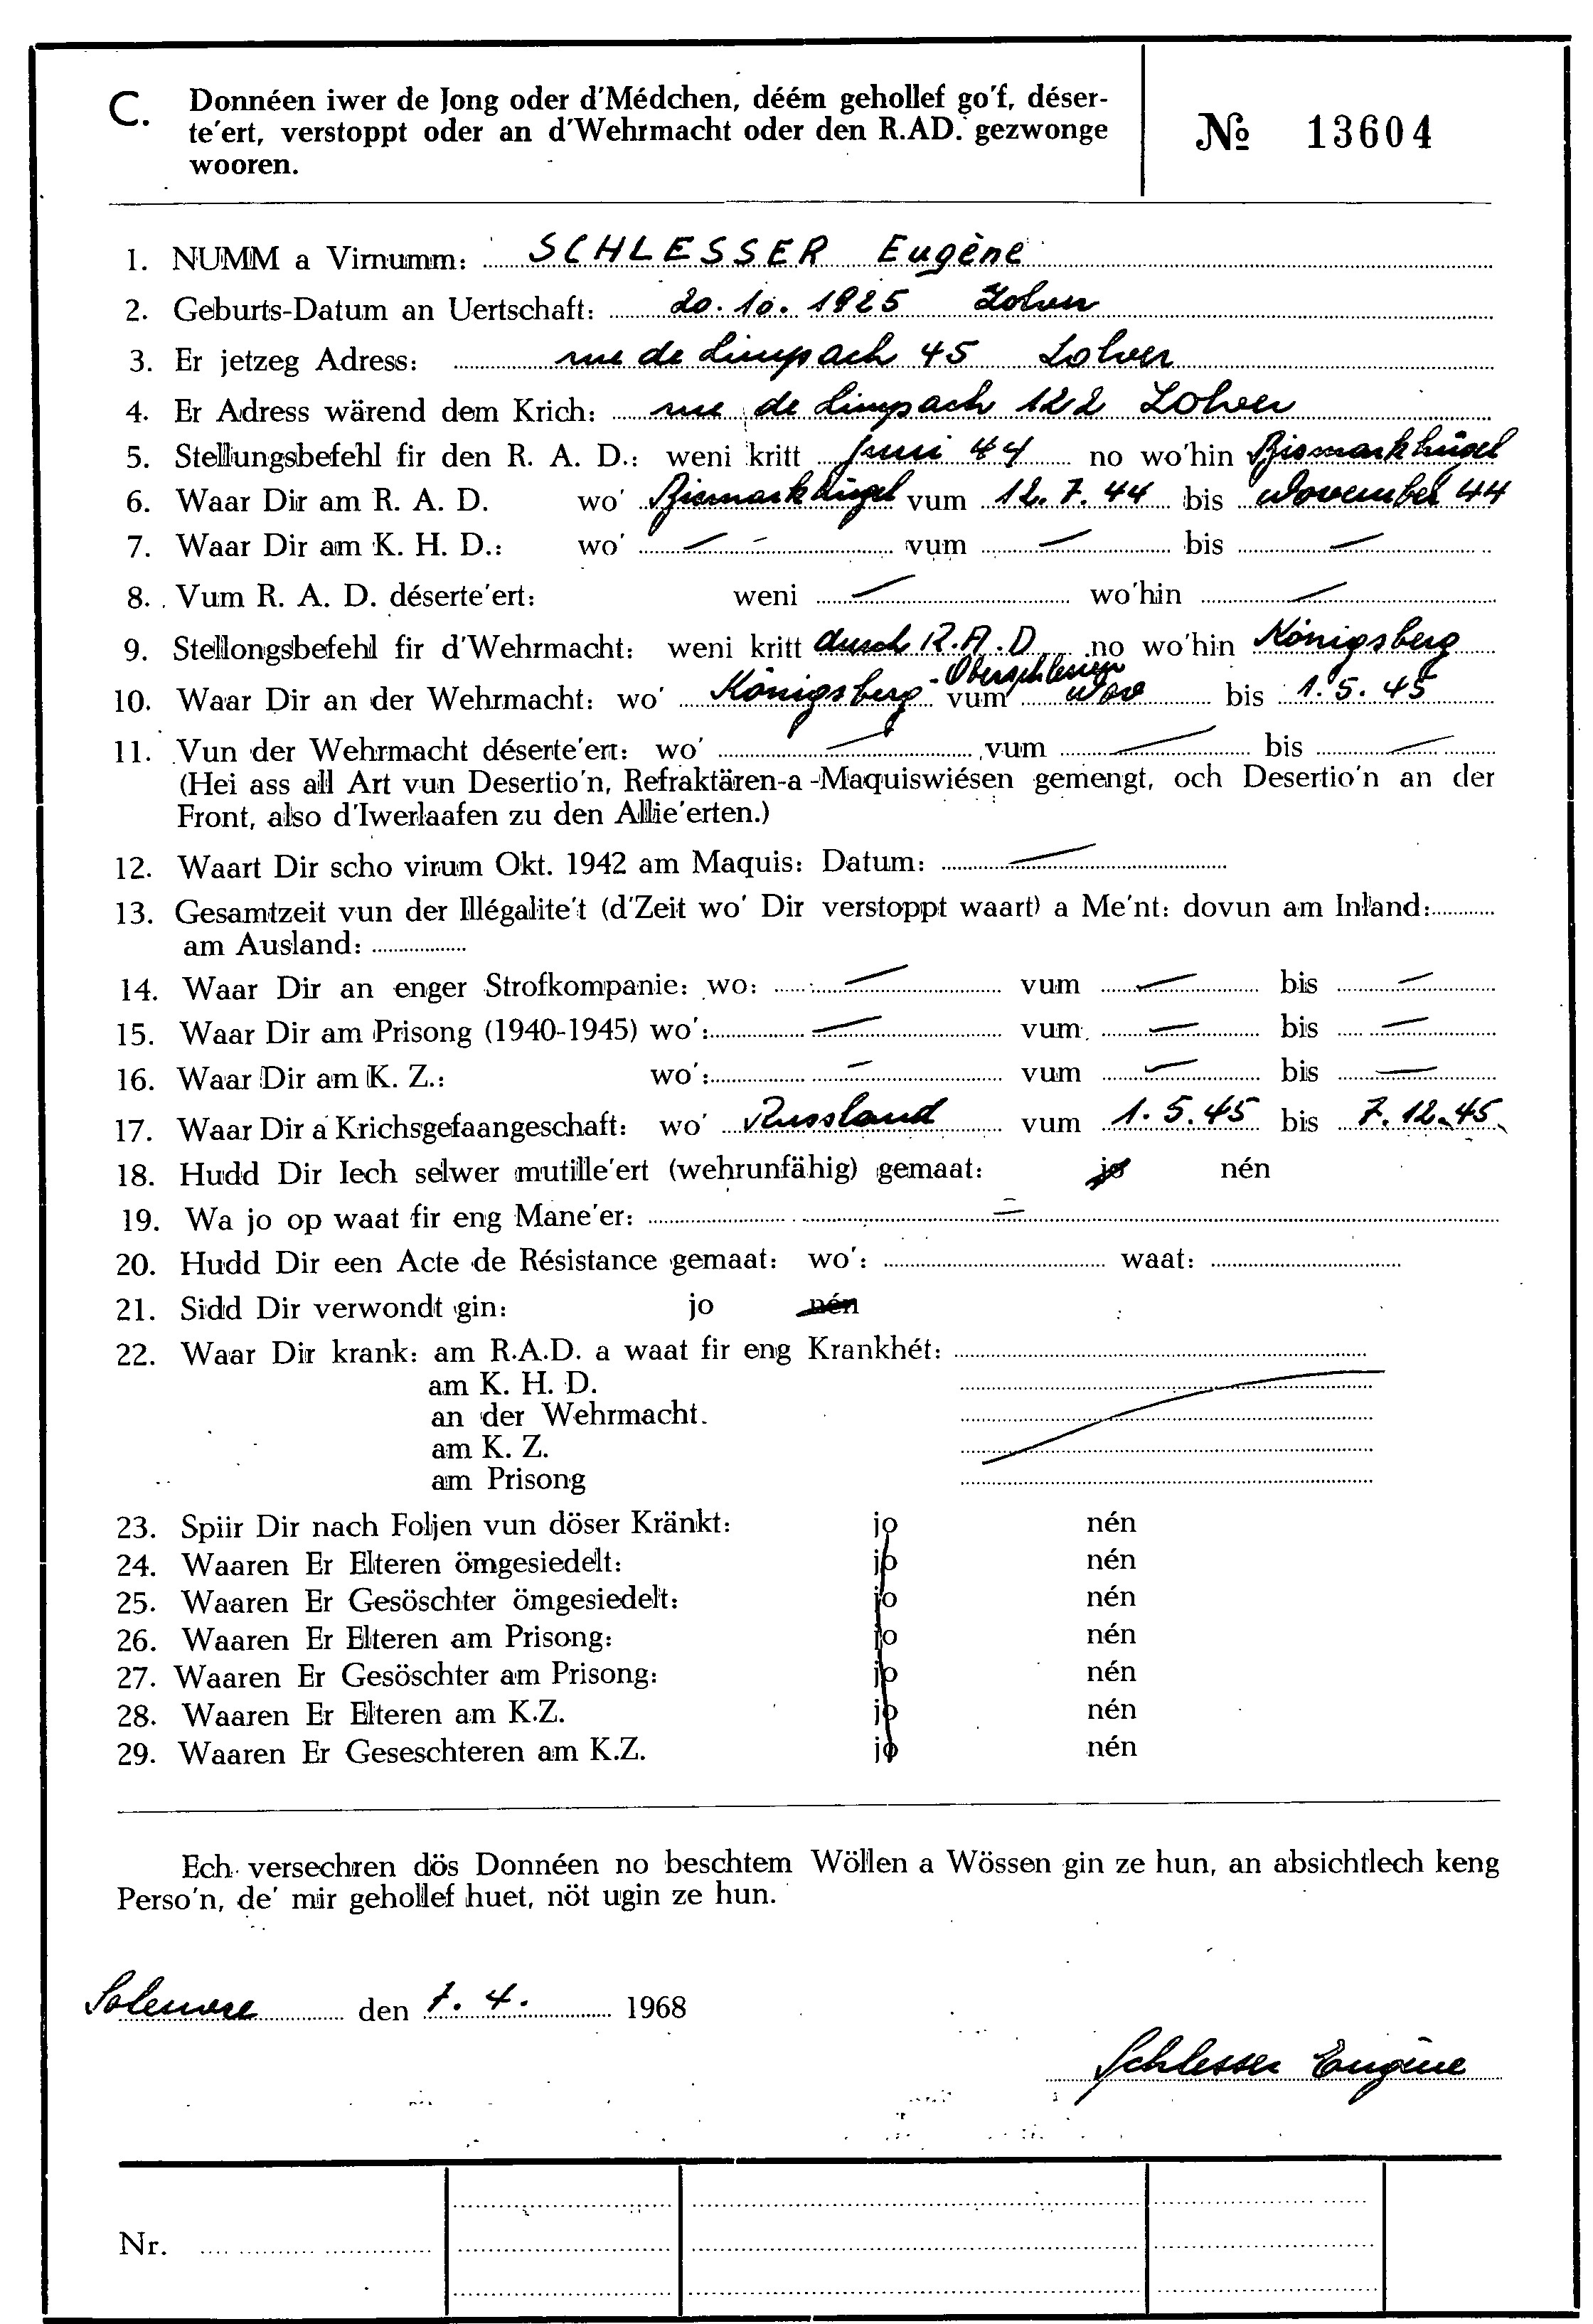 C. Donnéen iwer de Jong oder d'Médchen, déém gehollef go'f, déser-
te'ert, verstoppt oder an d'Wehrmacht oder den R.AD. gezwonge
wooren.
№ 13604
1. NUMM a Virnumm: SCHLESSER Eugène
2. Geburts-Datum an Uertschaft: 20.10.1925 Zolver
3. Er jetzeg Adress: rue de Limpach 45 Zolver
4. Er Adress wärend dem Krich: rue de Limpach 122 Zolver
5. Stellungsbefehl fir den R. A. D.: weni kritt Juni 44 no wo'hin Bismarkhügel
6. Waar Dir am R. A. D. wo' Bismarkhügel vum 12.7.44 bis November 44
7. Waar Dir am K. H. D.: wo' — vum — bis —
8. Vum R. A. D. déserte'ert: weni — wo'hin —
9. Stellongsbefehl fir d'Wehrmacht: weni kritt durch R.A.D no wo'hin Königsberg
10. Waar Dir an der Wehrmacht: wo' Königsberg - Oberschlesien vum Nov bis 1.5.45
11. Vun der Wehrmacht déserte'ert: wo' — vum — bis —
(Hei ass all Art vun Desertio'n, Refraktären-a-Maquiswiésen gemengt, och Desertio'n an der
Front, also d'Iwerlaafen zu den Allie'erten.)
12. Waart Dir scho virum Okt. 1942 am Maquis: Datum: —
13. Gesamtzeit vun der Illégalite't (d'Zeit wo' Dir verstoppt waart) a Me'nt: dovun am Inland:
am Ausland:
14. Waar Dir an enger Strofkompanie: wo: — vum — bis —
15. Waar Dir am Prisong (1940-1945) wo': — vum — bis —
16. Waar Dir am K. Z.: wo': — vum — bis —
17. Waar Dir a Krichsgefaangeschaft: wo' Russland vum 1.5.45 bis 7.12.45
18. Hudd Dir Iech selwer mutille'ert (wehrunfähig) gemaat: jo nén
19. Wa jo op waat fir eng Mane'er: —
20. Hudd Dir een Acte de Résistance gemaat: wo': waat:
21. Sidd Dir verwondt gin: jo nén
22. Waar Dir krank: am R.A.D. a waat fir eng Krankhét:
am K. H. D.
an der Wehrmacht.
am K. Z.
am Prisong
23. Spiir Dir nach Foljen vun döser Kränkt: jo nén
24. Waaren Er Elteren ömgesiedelt: jo nén
25. Waaren Er Gesöschter ömgesiedelt: jo nén
26. Waaren Er Elteren am Prisong: jo nén
27. Waaren Er Gesöschter am Prisong: jo nén
28. Waaren Er Elteren am K.Z. jo nén
29. Waaren Er Geseschteren am K.Z. jo nén
Ech versechren dös Donnéen no beschtem Wöllen a Wössen gin ze hun, an absichtlech keng
Perso'n, de' mir gehollef huet, nöt ugin ze hun.
Soleuvre den 7. 4. 1968
Schlesser Eugène
Nr.